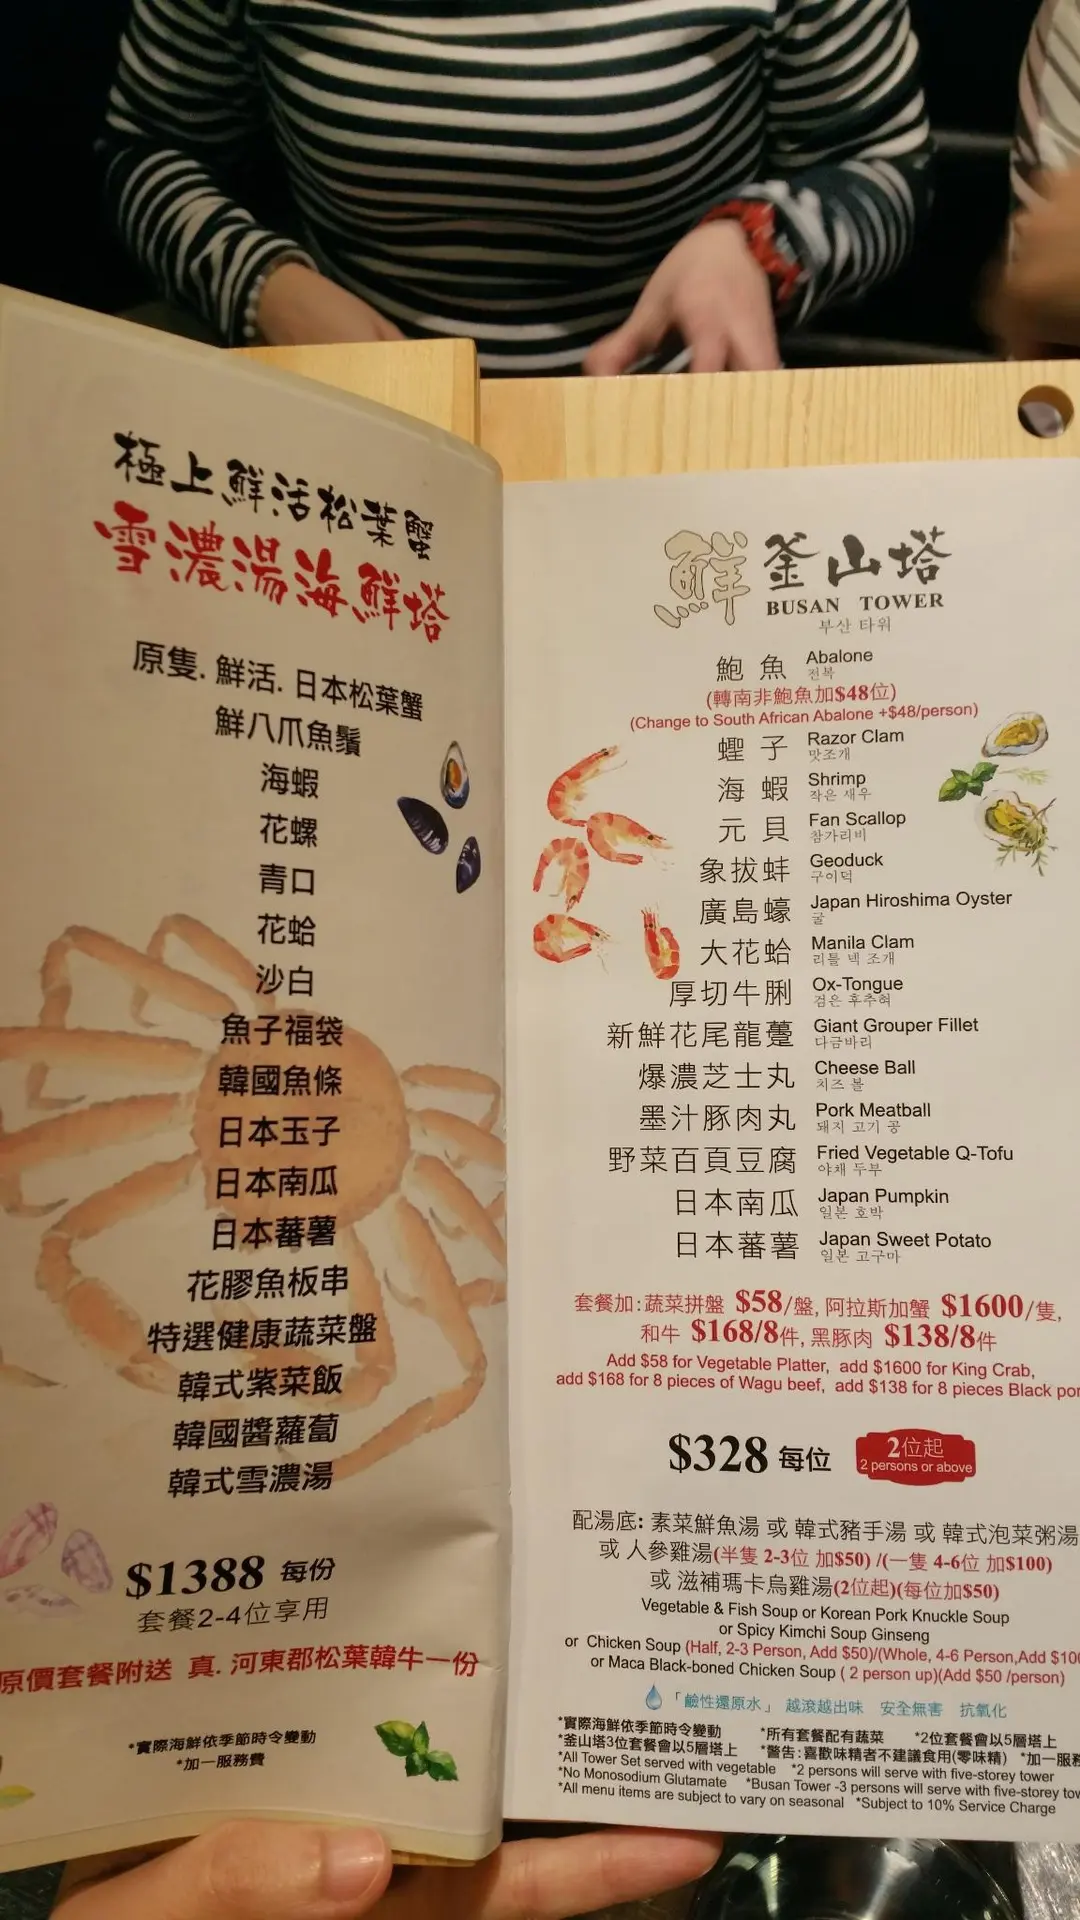 極上鮮活松葉蟹
雪濃湯海鮮塔
原隻. 鮮活. 日本松葉蟹
鮮八爪魚鬚
海蝦
花螺
青口
花蛤
沙白
魚子福袋
韓國魚條
日本玉子
日本南瓜
日本蕃薯
花膠魚板串
特選健康蔬菜盤
韓式紫菜飯
韓國醬蘿蔔
韓式雪濃湯
$1388 每份
套餐2-4位享用
原價套餐附送 真. 河東郡松葉韓牛一份
*實際海鮮依季節時令變動
*加一服務費
鮮 釜山塔
BUSAN TOWER
부산 타워
鮑魚 Abalone
전복
(轉南非鮑魚加$48位)
(Change to South African Abalone +$48/person)
蟶子 Razor Clam
맛조개
海蝦 Shrimp
작은 새우
元貝 Fan Scallop
참가리비
象拔蚌 Geoduck
구이덕
廣島蠔 Japan Hiroshima Oyster
굴
大花蛤 Manila Clam
리틀 넥 조개
厚切牛脷 Ox-Tongue
검은 후추혀
新鮮花尾龍躉 Giant Grouper Fillet
다금바리
爆濃芝士丸 Cheese Ball
치즈 볼
墨汁豚肉丸 Pork Meatball
돼지 고기 공
野菜百頁豆腐 Fried Vegetable Q-Tofu
야채 두부
日本南瓜 Japan Pumpkin
일본 호박
日本蕃薯 Japan Sweet Potato
일본 고구마
套餐加:蔬菜拼盤 $58/盤, 阿拉斯加蟹 $1600/隻,
和牛 $168/8件, 黑豚肉 $138/8件
Add $58 for Vegetable Platter, add $1600 for King Crab,
add $168 for 8 pieces of Wagu beef, add $138 for 8 pieces Black
$328 每位
2位起
2 persons or above
配湯底: 素菜鮮魚湯 或 韓式豬手湯 或 韓式泡菜粥湯
或 人參雞湯(半隻 2-3位 加$50) /(一隻 4-6位 加$100)
或 滋補瑪卡烏雞湯(2位起)(每位加$50)
Vegetable & Fish Soup or Korean Pork Knuckle Soup
or Spicy Kimchi Soup Ginseng
or Chicken Soup (Half, 2-3 Person, Add $50)/(Whole, 4-6 Person,Add
or Maca Black-boned Chicken Soup ( 2 person up)(Add $50 /person)
「鹼性還原水」 越滾越出味 安全無害 抗氧化
*實際海鮮依季節時令變動 *所有套餐配有蔬菜 *2位套餐會以5層塔上
*釜山塔3位套餐會以5層塔上 *警告:喜歡味精者不建議食用(零味精) *加一服務
*All Tower Set served with vegetable *2 persons will serve with five-storey tower
*No Monosodium Glutamate *Busan Tower -3 persons will serve with five-storey
*All menu items are subject to vary on seasonal *Subject to 10% Service Charge